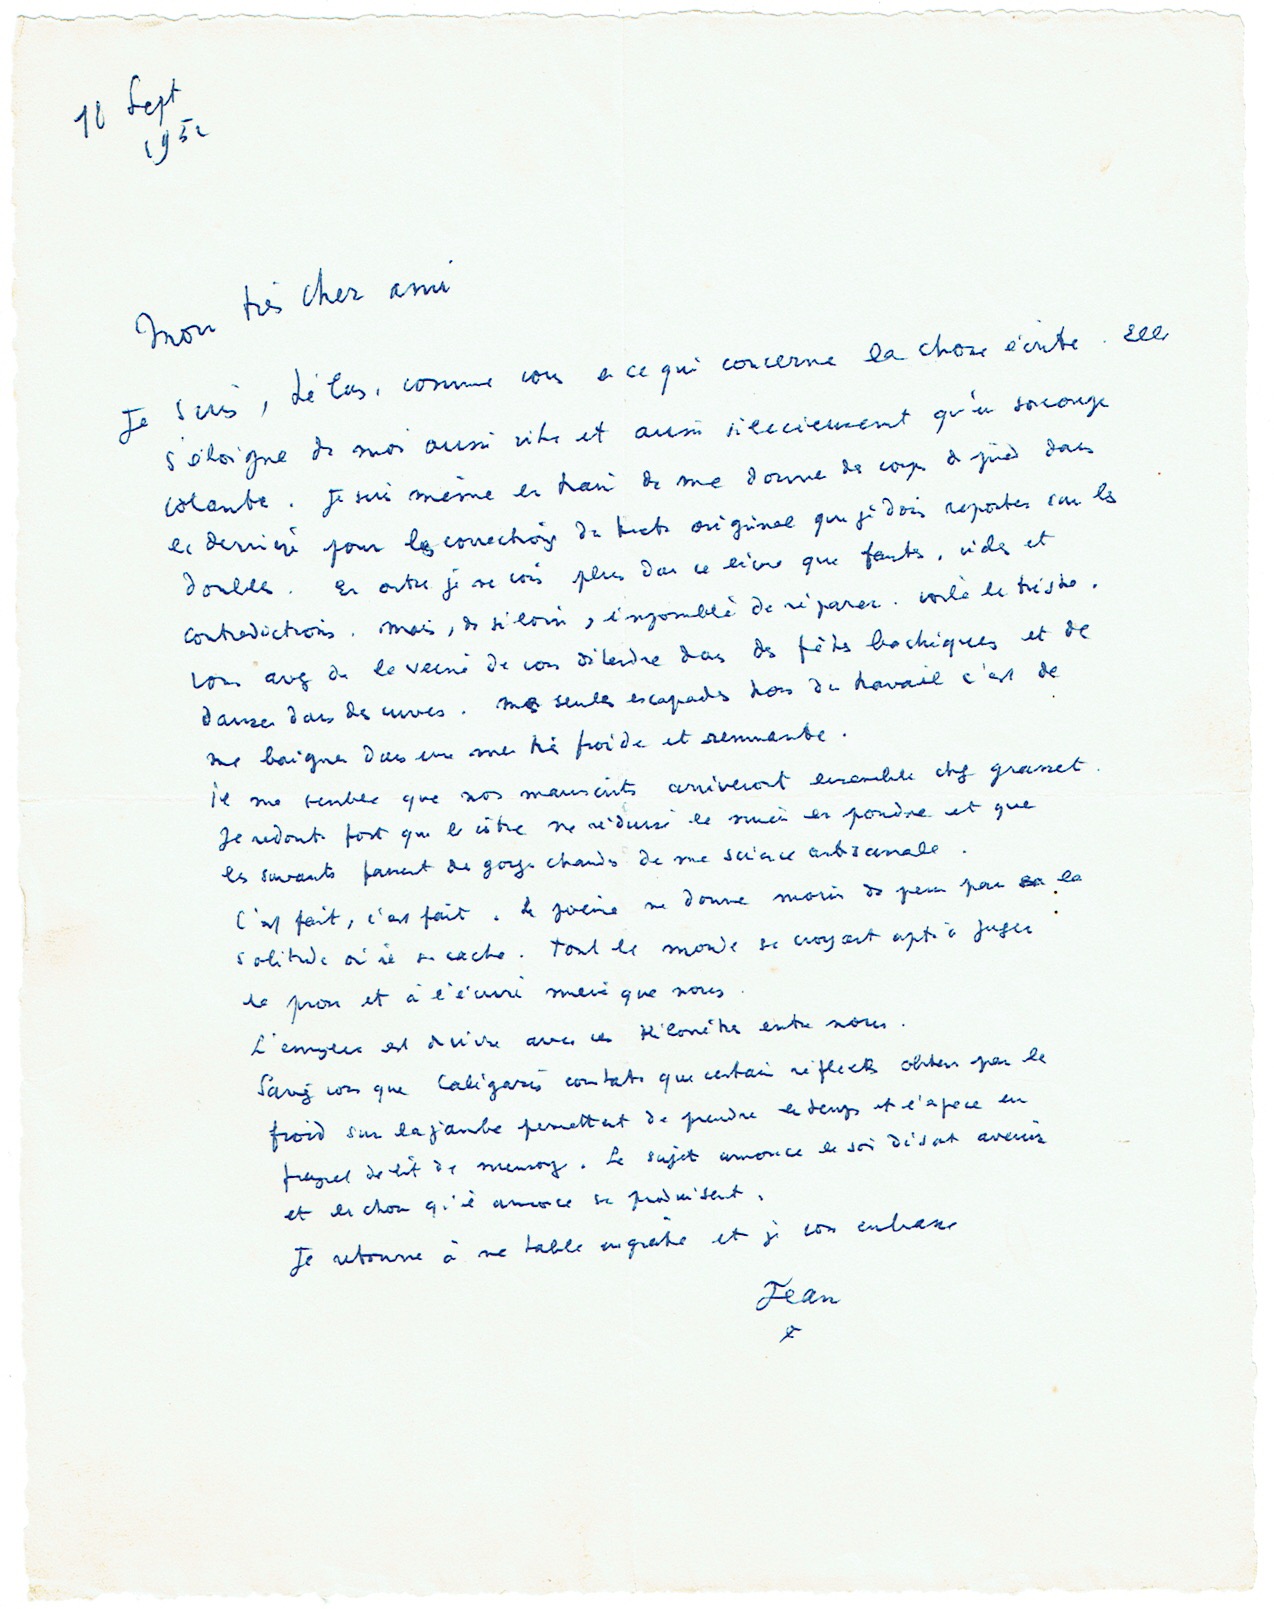 18 Sept
1952
Mon très cher ami
Je suis, hélas, comme vous en ce qui concerne la chose écrite. Elle
s'éloigne de moi aussi vite et aussi silencieusement qu'une soucoupe
volante. Je suis même en train de me donner des coups de pied dans
le derrière pour les corrections du texte original que je dois reporter sur les
doubles. En outre je ne vois plus dans ce livre que fautes, vides et
contradictions. Mais, de si loin, impossible de réparer. Voilà le triste.
Vous avez de la veine de vous détendre dans des fêtes bachiques et de
danser dans des cuves. Mes seules escapades hors du travail c'est de
me baigner dans une mer très froide et remuante.
Il me semble que nos manuscrits arriveront ensemble chez Grasset.
Je redoute fort que le vôtre ne réduise le mien en poudre et que
les savants fassent des gorges chaudes de ma science artisanale.
C'est fait, c'est fait. Le poème me donne moins de peur par sa la
solitude où il se cache. Tout le monde se croyant apte à juger
la prose et à l'écrire mieux que nous.
L'ennuyeux est d'écrire avec ces kilomètres entre nous.
Savez vous que Caligaris constate que certains réflexes obtenus par le
froid sur la jambe permettent de prendre le temps et l'espace en
flagrant délit de mensonge. Le sujet annonce le soi disant avenir
et les choses qu'il annonce se produisent.
Je retourne à ma table ingrate et je vous embrasse
Jean